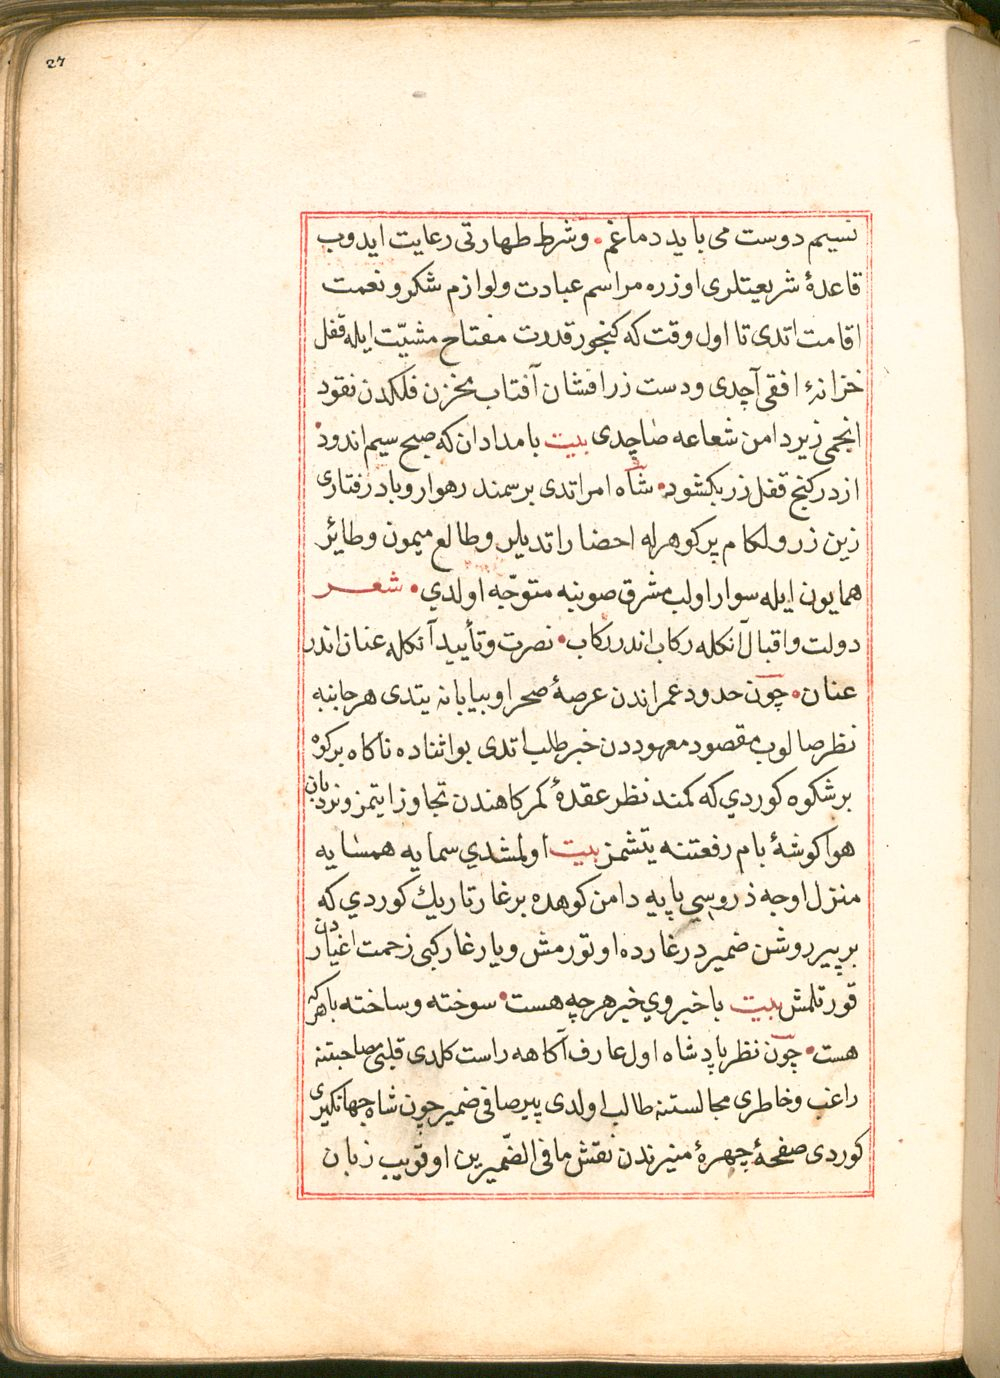 27
نسیم دوست می باید دماغم. وشرط طهارتی رعایت ایدوب
قاعدهٔ شریعیتلری اوزره مراسم عبادت ولوازم شکر ونعمت
اقامت اتدی تا اول وقت که کنجور قدرت مفتاح مشیّت ایله قفل
خزانهٔ افقی آچدی ودست زر افشان آفتاب مخزن فلکدن نقود
انجمی زیر دامن شعاعه صاچدی بیت بامدادان که صبح سیم اندود
از در کنج قفل زر بکشود. شاه امر اتدی بر سمند رهوار وباد رفتاری
زین زر ولکام پر کوهرله احضار اتدیلر وطالع میمون وطائر
همایون ایله سوار اولب مشرق صوبنه متوجّه اولدي. شعر
دولت واقبال آنکله رکاب اندر رکاب. نصرت وتأیید آنکله عنان اندر
عنان. چون حدود عمراندن عرصهٔ صحرا وبیابانه یتدی هر جانبه
نظر صالوب مقصود معهوددن خبر طلب اتدی بو اثناده ناکاه بر کوه
بر شکوه کوردي که کمند نظر عقدهٔ کمرکاهندن تجاوز ایتمز ونردبان
هوا کوشهٔ بام رفعتنه یتشمز بیت اولمشدي سمایه همسایه
منزل اوجه ذروسي پایه دامن کوهده بر غار تاریك کوردي که
بر پیر روشن ضمیر در غارده اوتورمش ویار غار کبی زحمت اغیاردن
قورتلمش بیت باخبر وي خبر هرچه هست. سوخته وساخته با هرکه
هست. چون نظر پادشاه اول عارف آکاهه راست کلدی قلبی مصاحبتنه
راغب وخاطری مجالستنه طالب اولدی پیر صافی ضمیر چون شاه جهانکیری
کوردی صفحهٔ چهرهٔ منیرندن نقش ما فی الضّمیرین اوقویب زبان